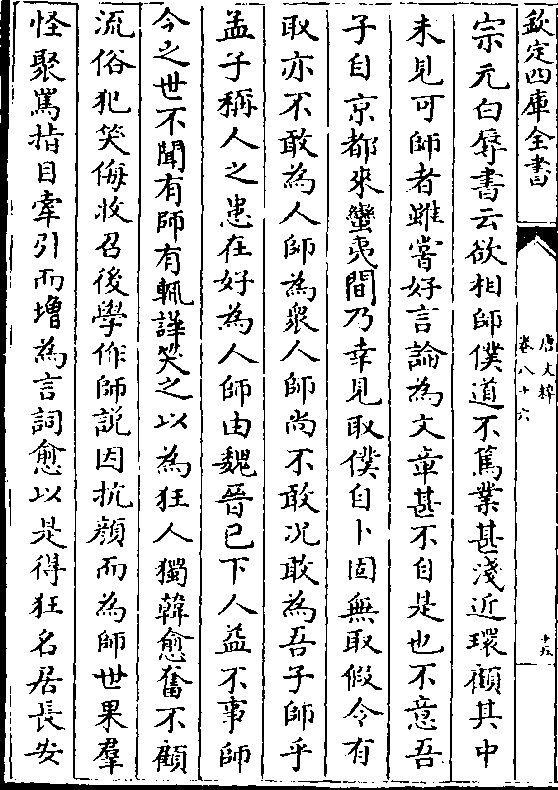 欽定四庫全書
唐文粹
卷八十六
十五
宗元白辱書云欲相師僕道不篤業甚淺近環顧其中
未見可師者雖嘗好言論為文章甚不自是也不意吾
子自京都來蠻夷間乃幸見取僕自卜固無取假令有
取亦不敢為人師為衆人師尚不敢况敢為吾子師乎
孟子稱人之患在好為人師由魏晉已下人益不事師
今之世不聞有師有輒譁笑之以為狂人獨韓愈奮不顧
流俗犯笑侮收召後學作師説因抗顔而為師世果羣
怪聚罵指目牽引而増為言詞愈以是得狂名居長安